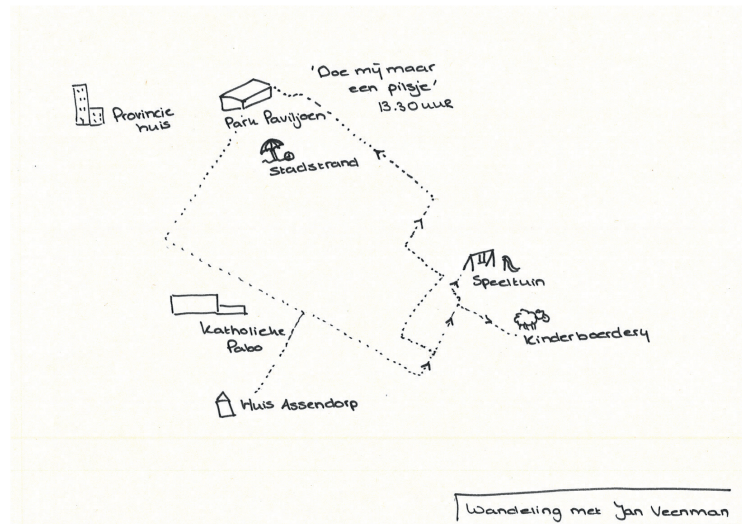 'Doe mij maar
een pilsje'
13.30 uur
Provincie
huis
Park Paviljoen
Stadstrand
Speeltuin
Katholieke
Pabo
Kinderboerderij
Huis Assendorp
Wandeling met Jan Veenman